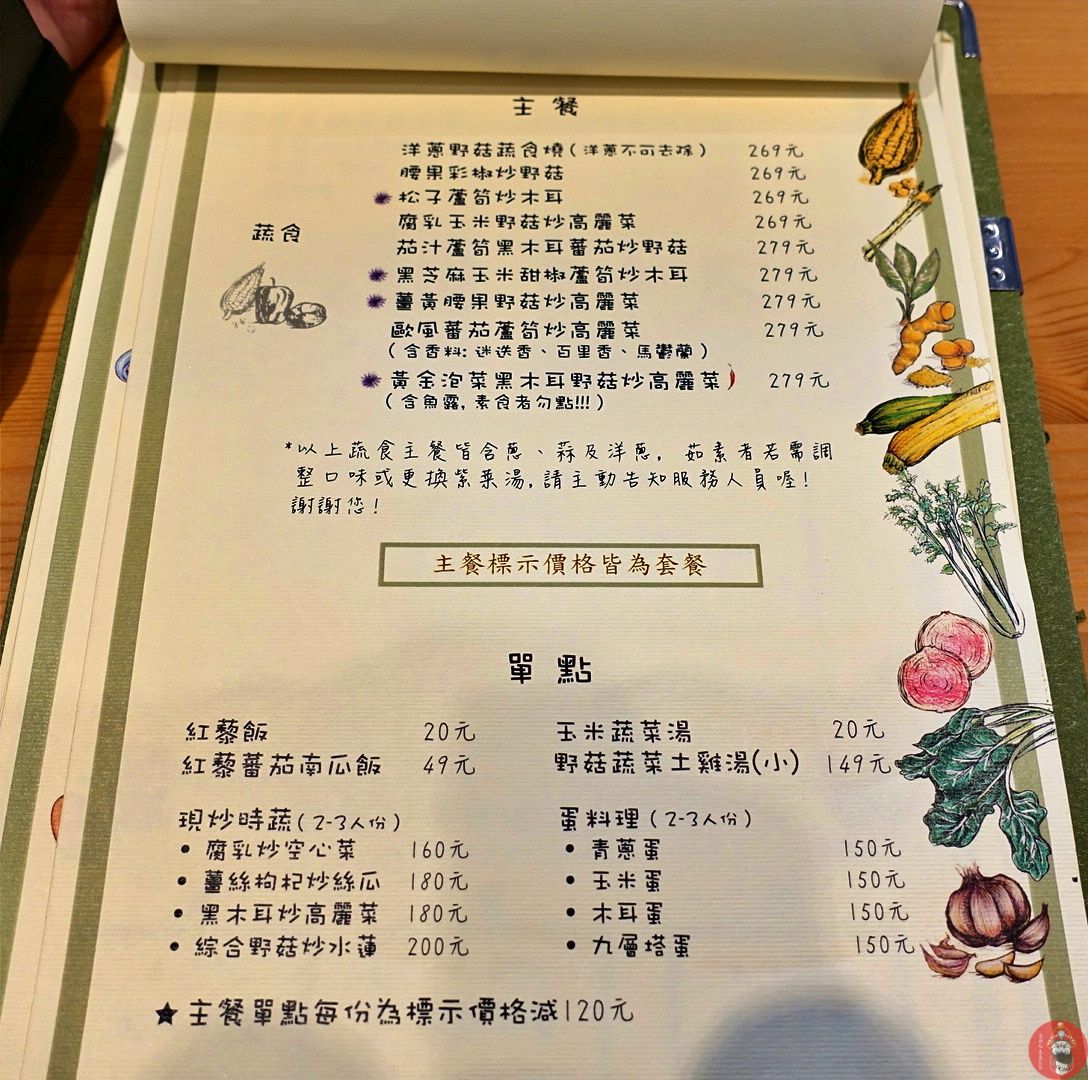 主餐
蔬食
洋蔥野菇蔬食燒(洋蔥不可去除) 269元
腰果彩椒炒野菇 269元
松子蘆筍炒木耳 269元
腐乳玉米野菇炒高麗菜 269元
茄汁蘆筍黑木耳蕃茄炒野菇 279元
黑芝麻玉米甜椒蘆筍炒木耳 279元
薑黃腰果野菇炒高麗菜 279元
歐風蕃茄蘆筍炒高麗菜 279元
(含香料: 迷迭香、百里香、馬鬱蘭)
黃金泡菜黑木耳野菇炒高麗菜 279元
(含魚露, 素食者勿點!!!)
*以上蔬食主餐皆含蔥、蒜及洋蔥, 茹素者若需調
整口味或更換紫菜湯, 請主動告知服務人員喔!
謝謝您!
主餐標示價格皆為套餐
單點
紅藜飯 20元 玉米蔬菜湯 20元
紅藜蕃茄南瓜飯 49元 野菇蔬菜土雞湯(小) 149元
現炒時蔬(2-3人份) 蛋料理(2-3人份)
• 腐乳炒空心菜 160元 • 青蔥蛋 150元
• 薑絲枸杞炒絲瓜 180元 • 玉米蛋 150元
• 黑木耳炒高麗菜 180元 • 木耳蛋 150元
• 綜合野菇炒水蓮 200元 • 九層塔蛋 150元
★ 主餐單點每份為標示價格減120元